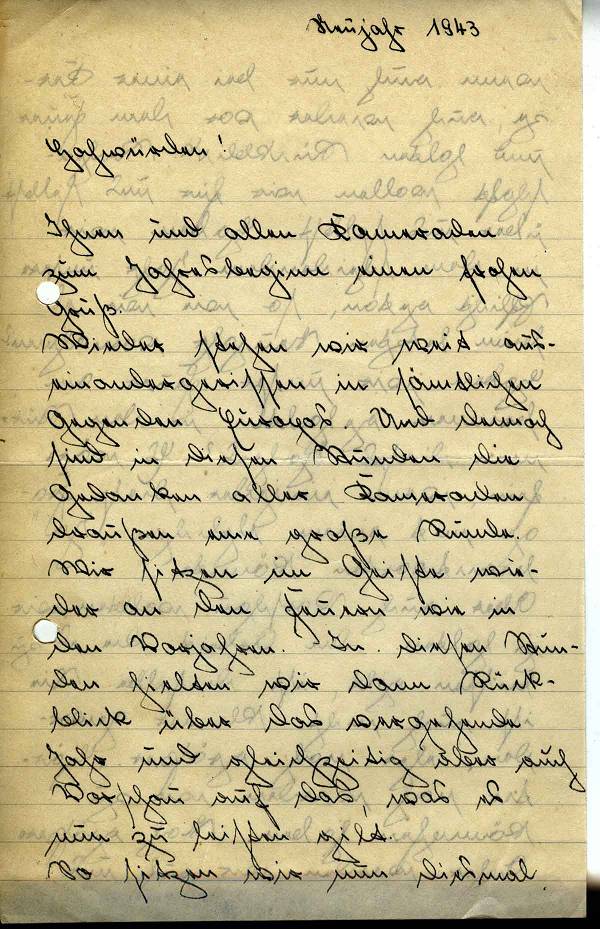 Neujahr 1943
Hochwürden!
Ihnen und allen Kameraden
zum Jahresbeginn einen frohen
Gruß.
Wieder stehen wir weit aus-
einandergerissen in sämtlichen
Gegenden Europas. Und dennoch
sind in diesen Stunden die
Gedanken aller Kameraden
draußen eine große Runde.
Wir sitzen im Geiste wie-
der an den Feuern wie in
den Vorjahren. In diesen Stun-
den hielten wir dann Rück-
blick über das vergehende
Jahr und gleichzeitig aber auch
Vorschau auf das, was es
nun zu leisten gilt.
So sitzen wir nun diesmal